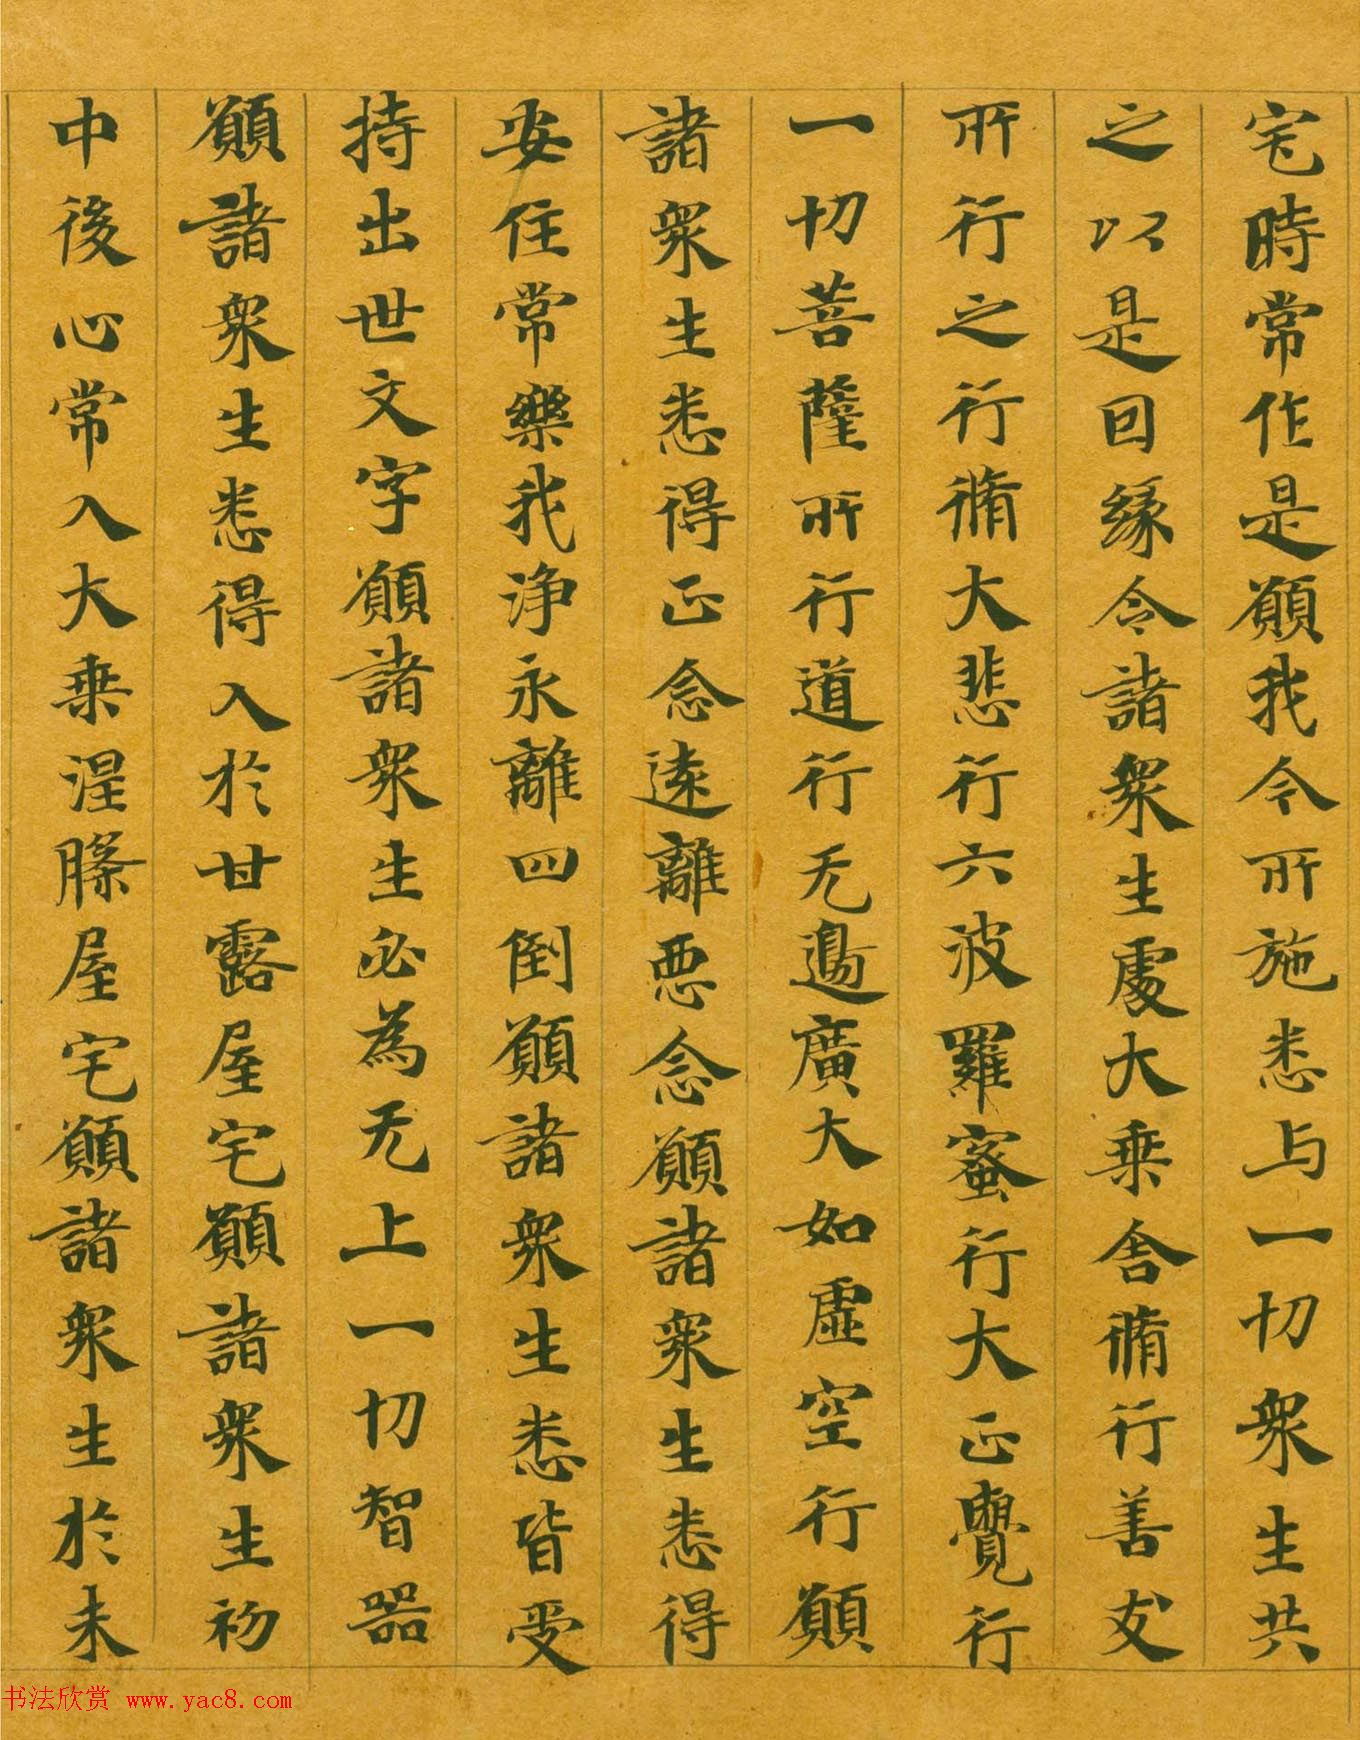 宅時常作是願我今所施悉与一切衆生共
之以是因緣令諸衆生處大乗舍脩行善友
所行之行脩大悲行六波羅蜜行大正覺行
一切菩薩所行道行无邊廣大如虛空行願
諸衆生悉得正念遠離惡念願諸衆生悉得
安住常樂我淨永離四倒願諸衆生悉皆受
持出世文字願諸衆生必為无上一切智器
願諸衆生悉得入於甘露屋宅願諸衆生初
中後心常入大乗涅槃屋宅願諸衆生於未
书法欣赏 www.yac8.com